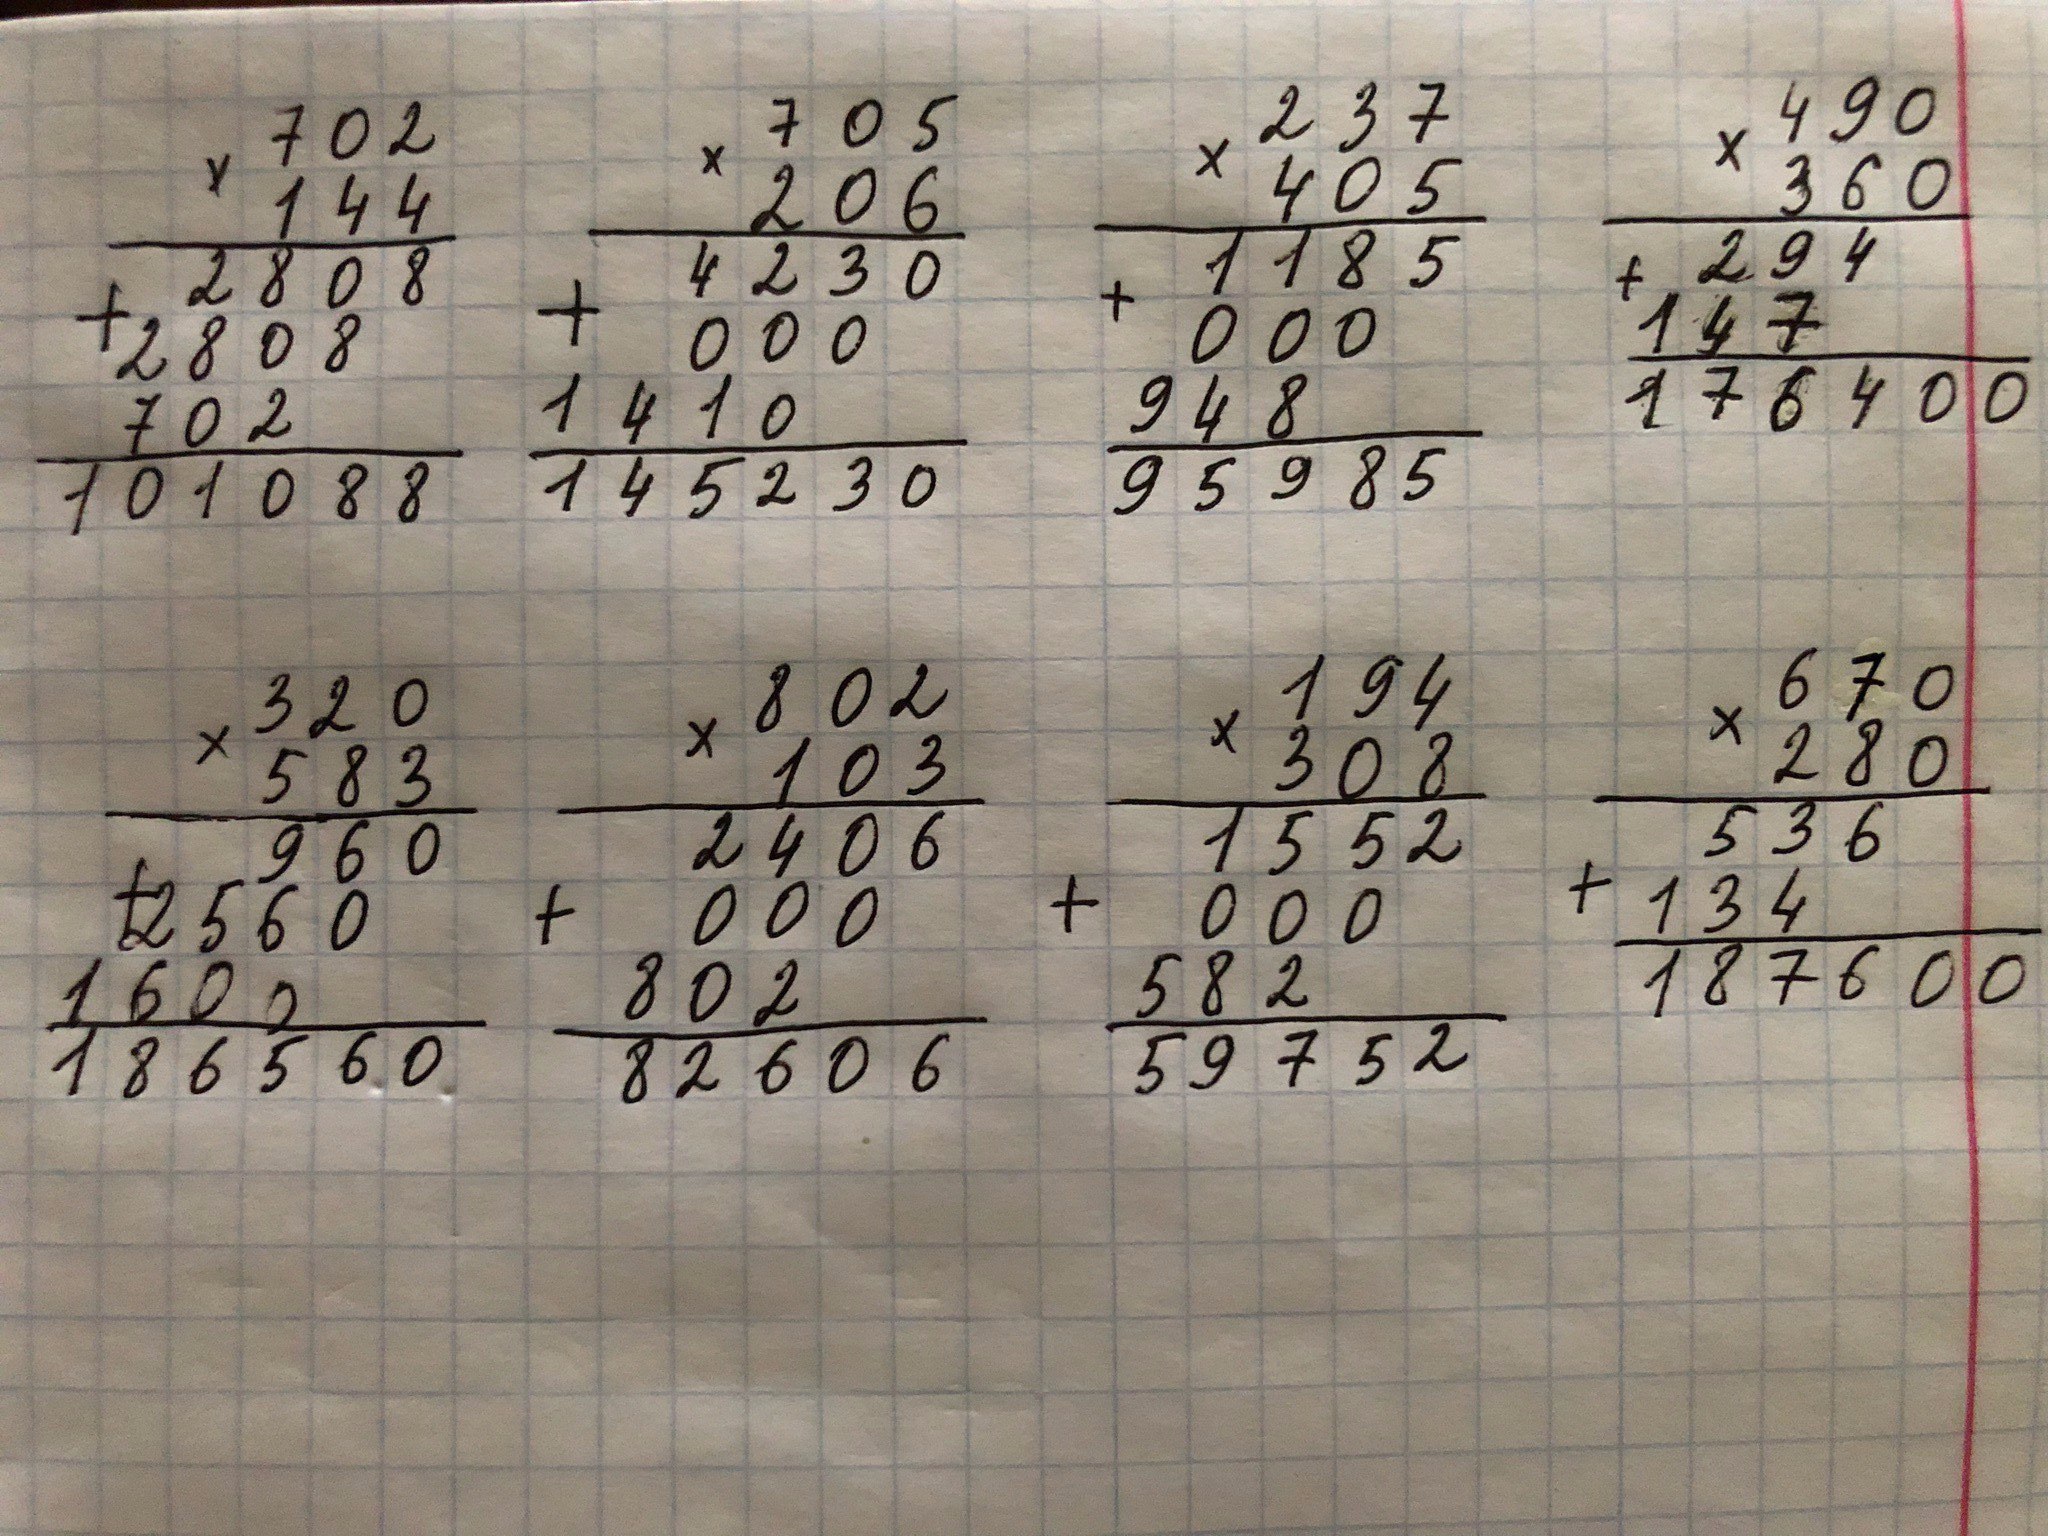 702
× 144
2808
+ 2808
702
101088
705
× 206
4230
+ 000
1410
145230
237
× 405
1185
+ 000
948
95985
490
× 360
+ 294
147
176400
320
× 583
960
+ 2560
1600
186560
802
× 103
2406
+ 000
802
82606
194
× 308
1552
+ 000
582
59752
670
× 280
536
+ 134
187600